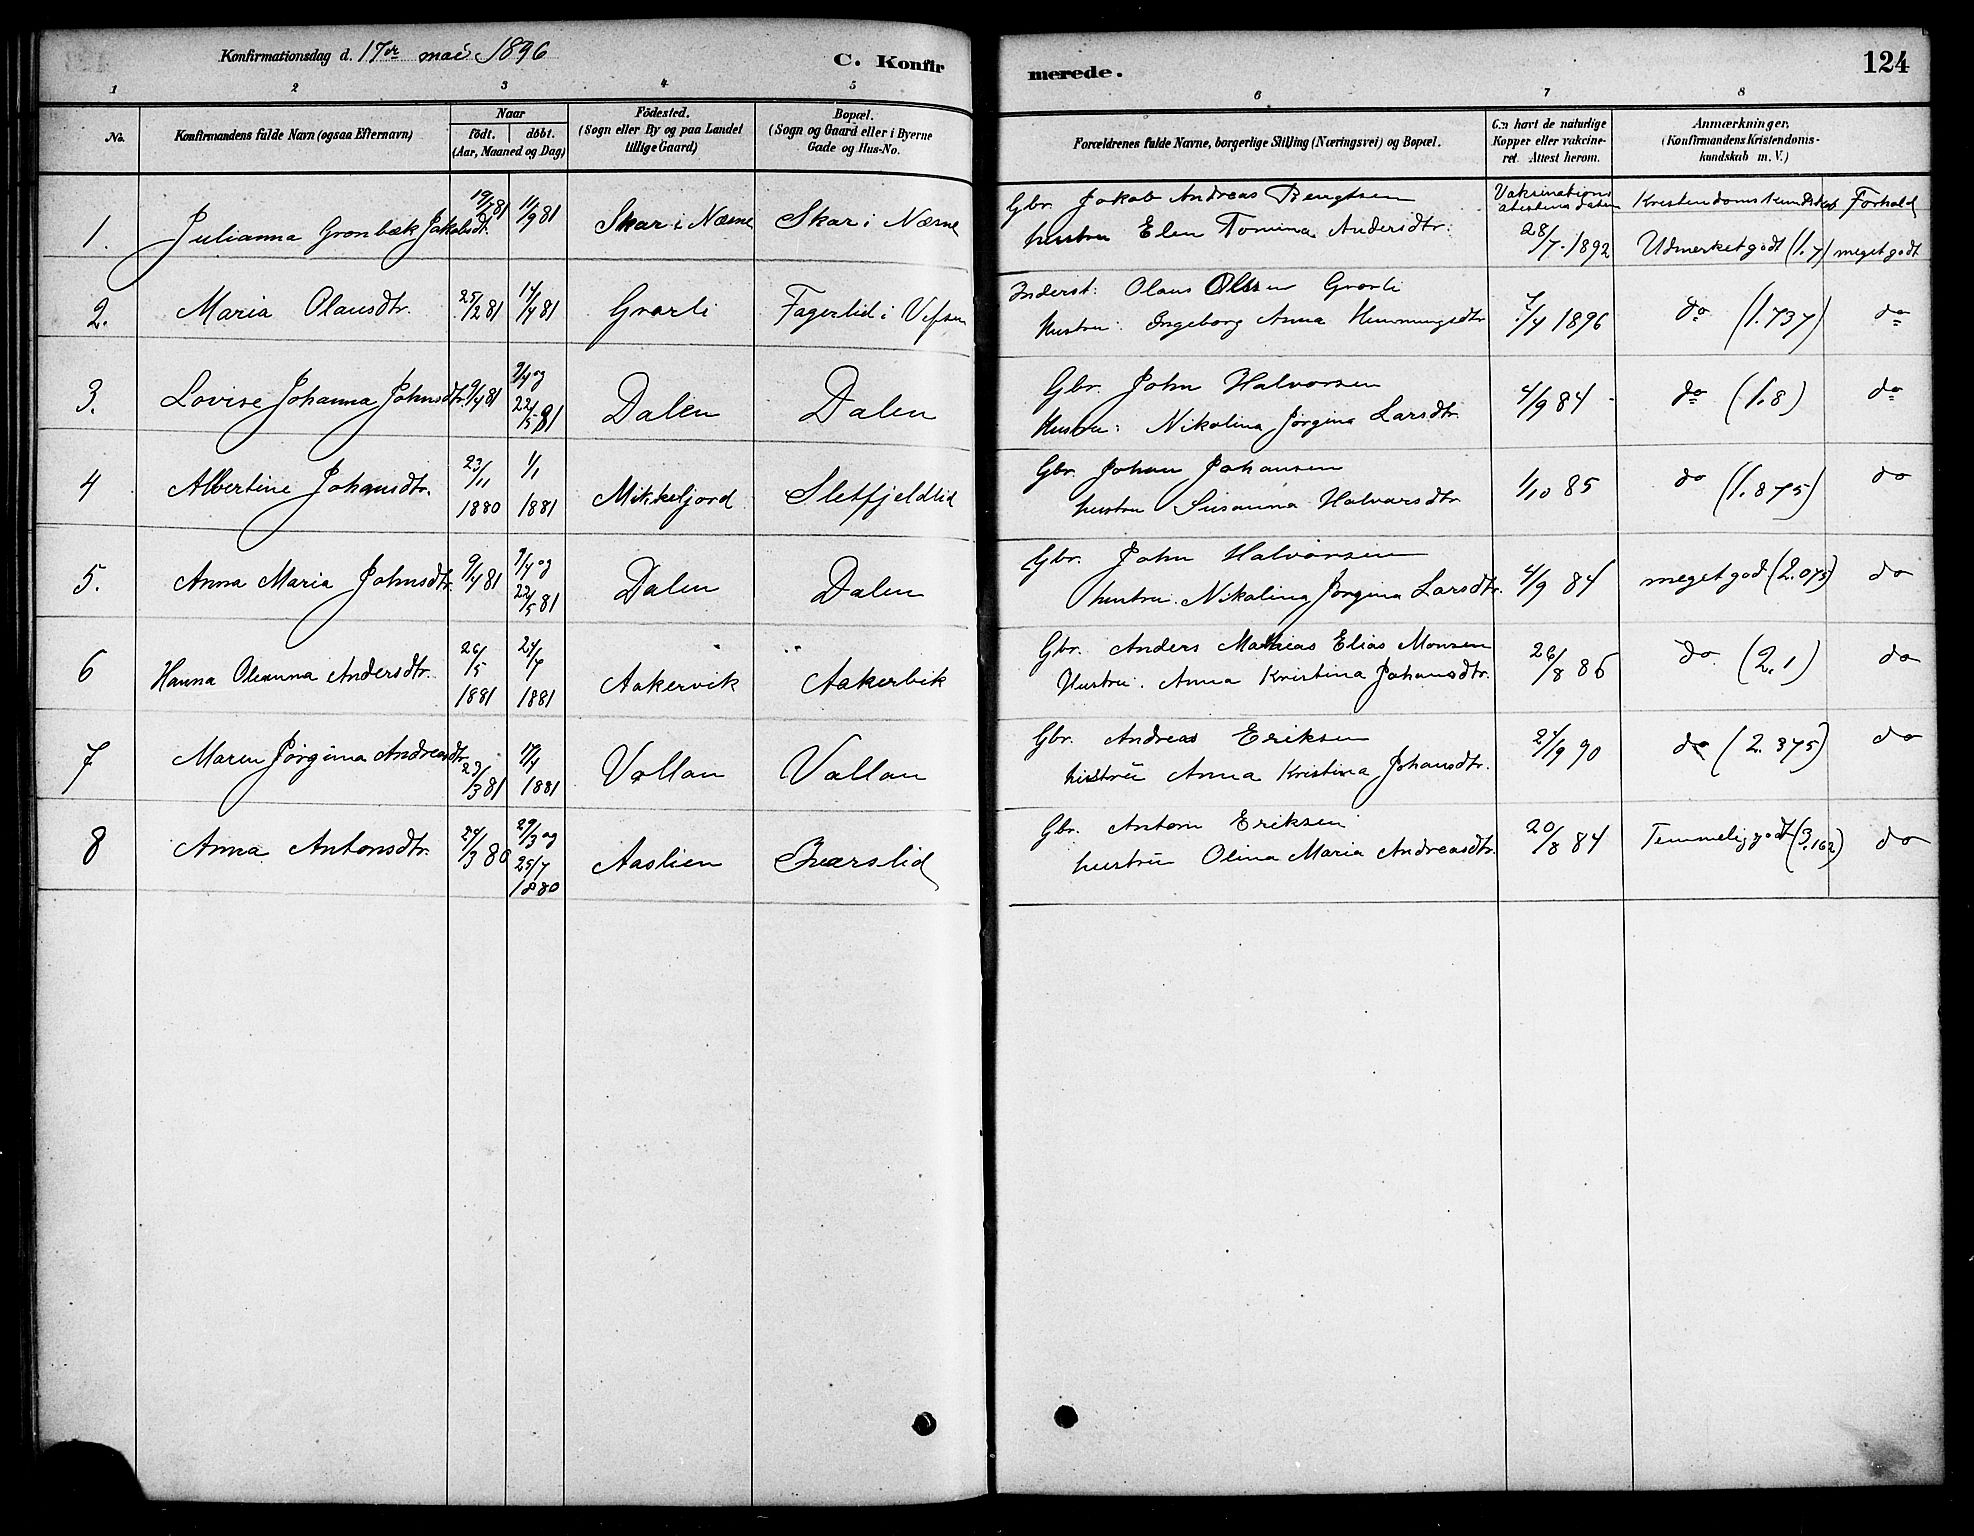 Konfirmationsdag d. 17de mai 1896
C. Konfirmerede.
124
1 2 3 4 5 6 7 8
No.
Konfirmandens fulde Navn (ogsaa Efternavn)
Naar
födt. döbt.
(Aar, Maaned og Dag)
Födested.
(Sogn eller By og paa Landet
tillige Gaard)
Bopæl.
(Sogn og Gaard eller i Byerne
Gade og Hus-No.
Forældrenes fulde Navne, borgerlige Stilling (Næringsvei) og Bopæl.
Om havt de naturlige
Kopper eller vakcine-
ret. Attest herom.
Anmærkninger.
(Konfirmandens Kristendoms-
kundskab m. V.)
1. Julianna Grønbæk Jakobsdt. 19/7 81 11/9 81 Skar i Næsne Skar i Næsne
Gbr. Jakob Andreas Bengtsen
hustru Elen Tomina Andersdtr.
Vaksinations
atestens datum
28/7 1892
Kristendomskundskab Forhold
Udmerket godt (1.7) meget godt
2. Maria Olausdtr. 25/2 81 14/4 81 Fagerlid i Vefsen
Inderst: Olaus Olsen
Hustru: Ingeborg Anna Hemmingsdtr
7/4 1896 do (1.737) do
3. Lovise Johanna Johnsdtr. 9/4 81 9/4 og 22/5 81 Dalen Dalen
Gbr. John Halvorsen
Hustru: Nikolina Jørgina Larsdtr.
4/9 84 do (1.8) do
4 Albertine Johansdtr. 23/11 1880 1/1 1881 Mikkeljord Sletfjeldlid
Gbr. Johan Johansen
hustru Susanna Halvarsdtr
1/10 85 do (1.875) do
5. Anna Maria Johnsdtr. 9/4 81 9/4 og 22/5 81 Dalen Dalen
Gbr. John Halvorsen
hustru. Nikolina Jørgina Larsdtr.
4/9 84 meget god (2.075) do
6 Hanna Oleanna Andersdtr. 26/5 1881 24/7 1881 Aakervik Aakervik
Gbr. Anders Mathias Elias Monsen
Hustru. Anna Kristina Johansdtr.
26/8 86 do (2.1) do
7 Maren Jørgina Andreasdtr. 23/3 81 17/4 1881 Vollan Vollan
Gbr. Andreas Eriksen
hustru Anna Kristina Johansdtr.
24/9 90 do (2.375) do
8 Anna Antonsdtr. 24/3 80 29/3 og 25/7 1880 Aaslien
Gbr. Anton Eriksen
hustru Olina Maria Andreasdtr.
20/8 84 Temmelig godt (3.162) do